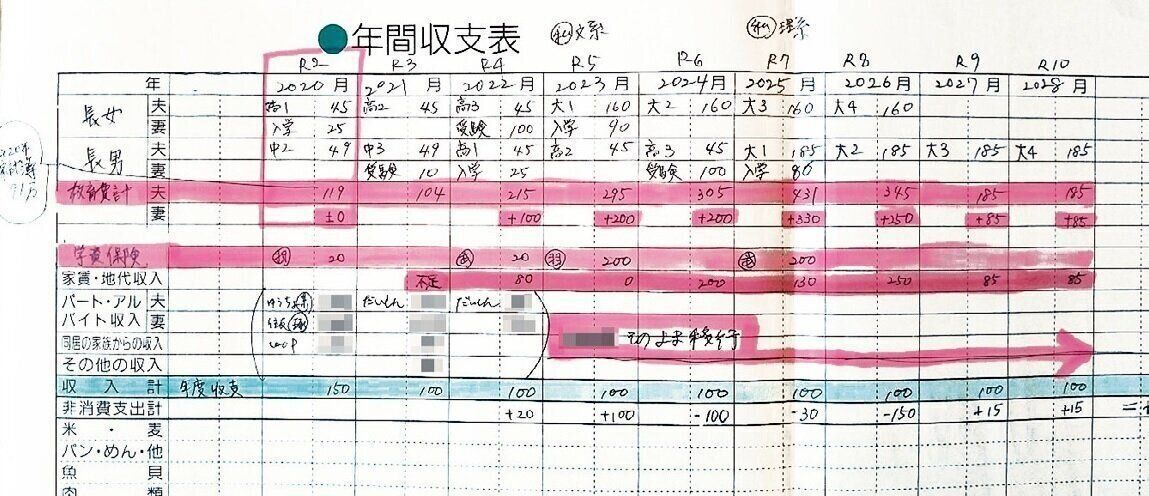 ●年間収支表 ㊙文系 ㊙理系
R2 R3 R4 R5 R6 R7 R8 R9 R10
年 2020月 2021月 2022月 2023月 2024月 2025月 2026月 2027月 2028月
長女 夫 高1 45 高2 45 高3 45 大1 160 大2 160 大3 160 大4 160
妻 入学 25 受験 100 入学 90
長男 夫 中2 49 中3 49 高1 45 高2 45 高3 45 大1 185 大2 185 大3 185 大4 185
妻 受験 10 入学 25 受験 100 入学 80
2020年
91万
教育費計 夫 119 104 215 295 305 431 345 185 185
妻 ±0 +100 +200 +200 +330 +250 +85 +85
学資保険 20 20 200 200
家賃・地代収入 不足 80 0 200 130 250 85 85
パート・アル 夫
バイト収入 妻
そのまま移行
同居の家族からの収入
その他の収入
収入計 年度収支 150 100 100 100 100 100 100 100 100
非消費支出計 +20 +100 -100 -30 -150 +15 +15
米・麦
パン・めん・他
魚貝
肉類